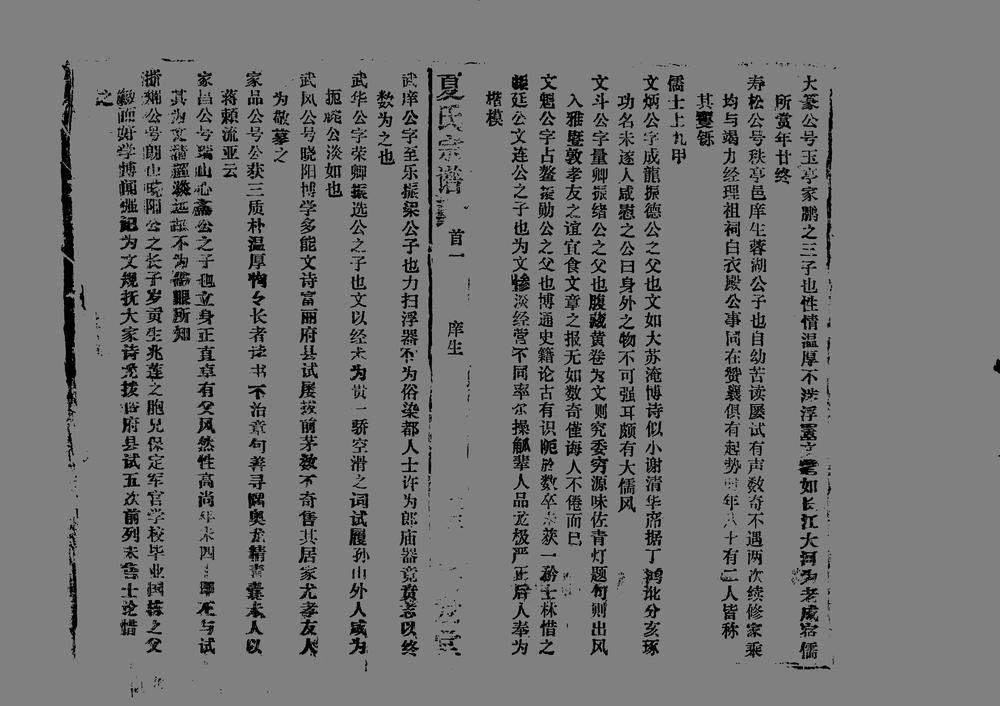 大篆公号玉亭家鹏之三子也性情温厚不染浮文如长江大河为老成宿儒
所赏年廿终
寿松公号秩亭邑庠生蓉湖公子也自幼苦读屡试有声数奇不遇两次续修家乘
均与竭力经理祖祠白衣殿公事同在赞襄俱有起势时年八十有二人皆称
其矍铄
儒士士九甲
文炳公字成龍振德公之父也文如大苏淹博诗似小谢清华席据丁鸿讹分亥琢
功名未遂人咸慰之公曰身外之物不可强耳颇有大儒风
文斗公字量卿振绪公之父也腹藏黄卷为文则究委穷源味佐青灯题句则出风
入雅墍敦孝友之谊宜食文章之报无如数奇僅诲人不倦而已
文魁公字占鳌振勋公之父也博通史籍论古有识数卒未获一衿士林惜之
振廷公文连公之子也为文惨淡经营不同率尔操觚辈人品尤极严正后人奉为
楷模
夏氏宗谱
首一
庠生
武庠公字至乐振梁公子也力扫浮器不为俗染都人士许为郎庙器竟赍志以终
数为之也
武华公字荣卿振选公之子也文以经术为贵一骄空滑之词试履孙山外人咸为
扼腕公淡如也
武凤公号晓阳博学多能文诗富丽府县试屡拔前茅数不奇售其居家尤孝友人
为敬摹之
家品公号公获三质朴温厚恂々长者读书不治章句善寻隅奥尤精青囊未人以
蒋赖流亚云
家昌公号瑞山心斋公之子也立身正直卓有父风然性高尚年未四十即不与试
其为文清超跌远不为器眼所知
浙翔公号朗山晓阳公之长子岁贡生兆莲之胞兄保定军官学校毕业国栋之父
敏而好学博闻强記为文规抚大家诗尤拔俗府县试五次前列未售士论惜
之